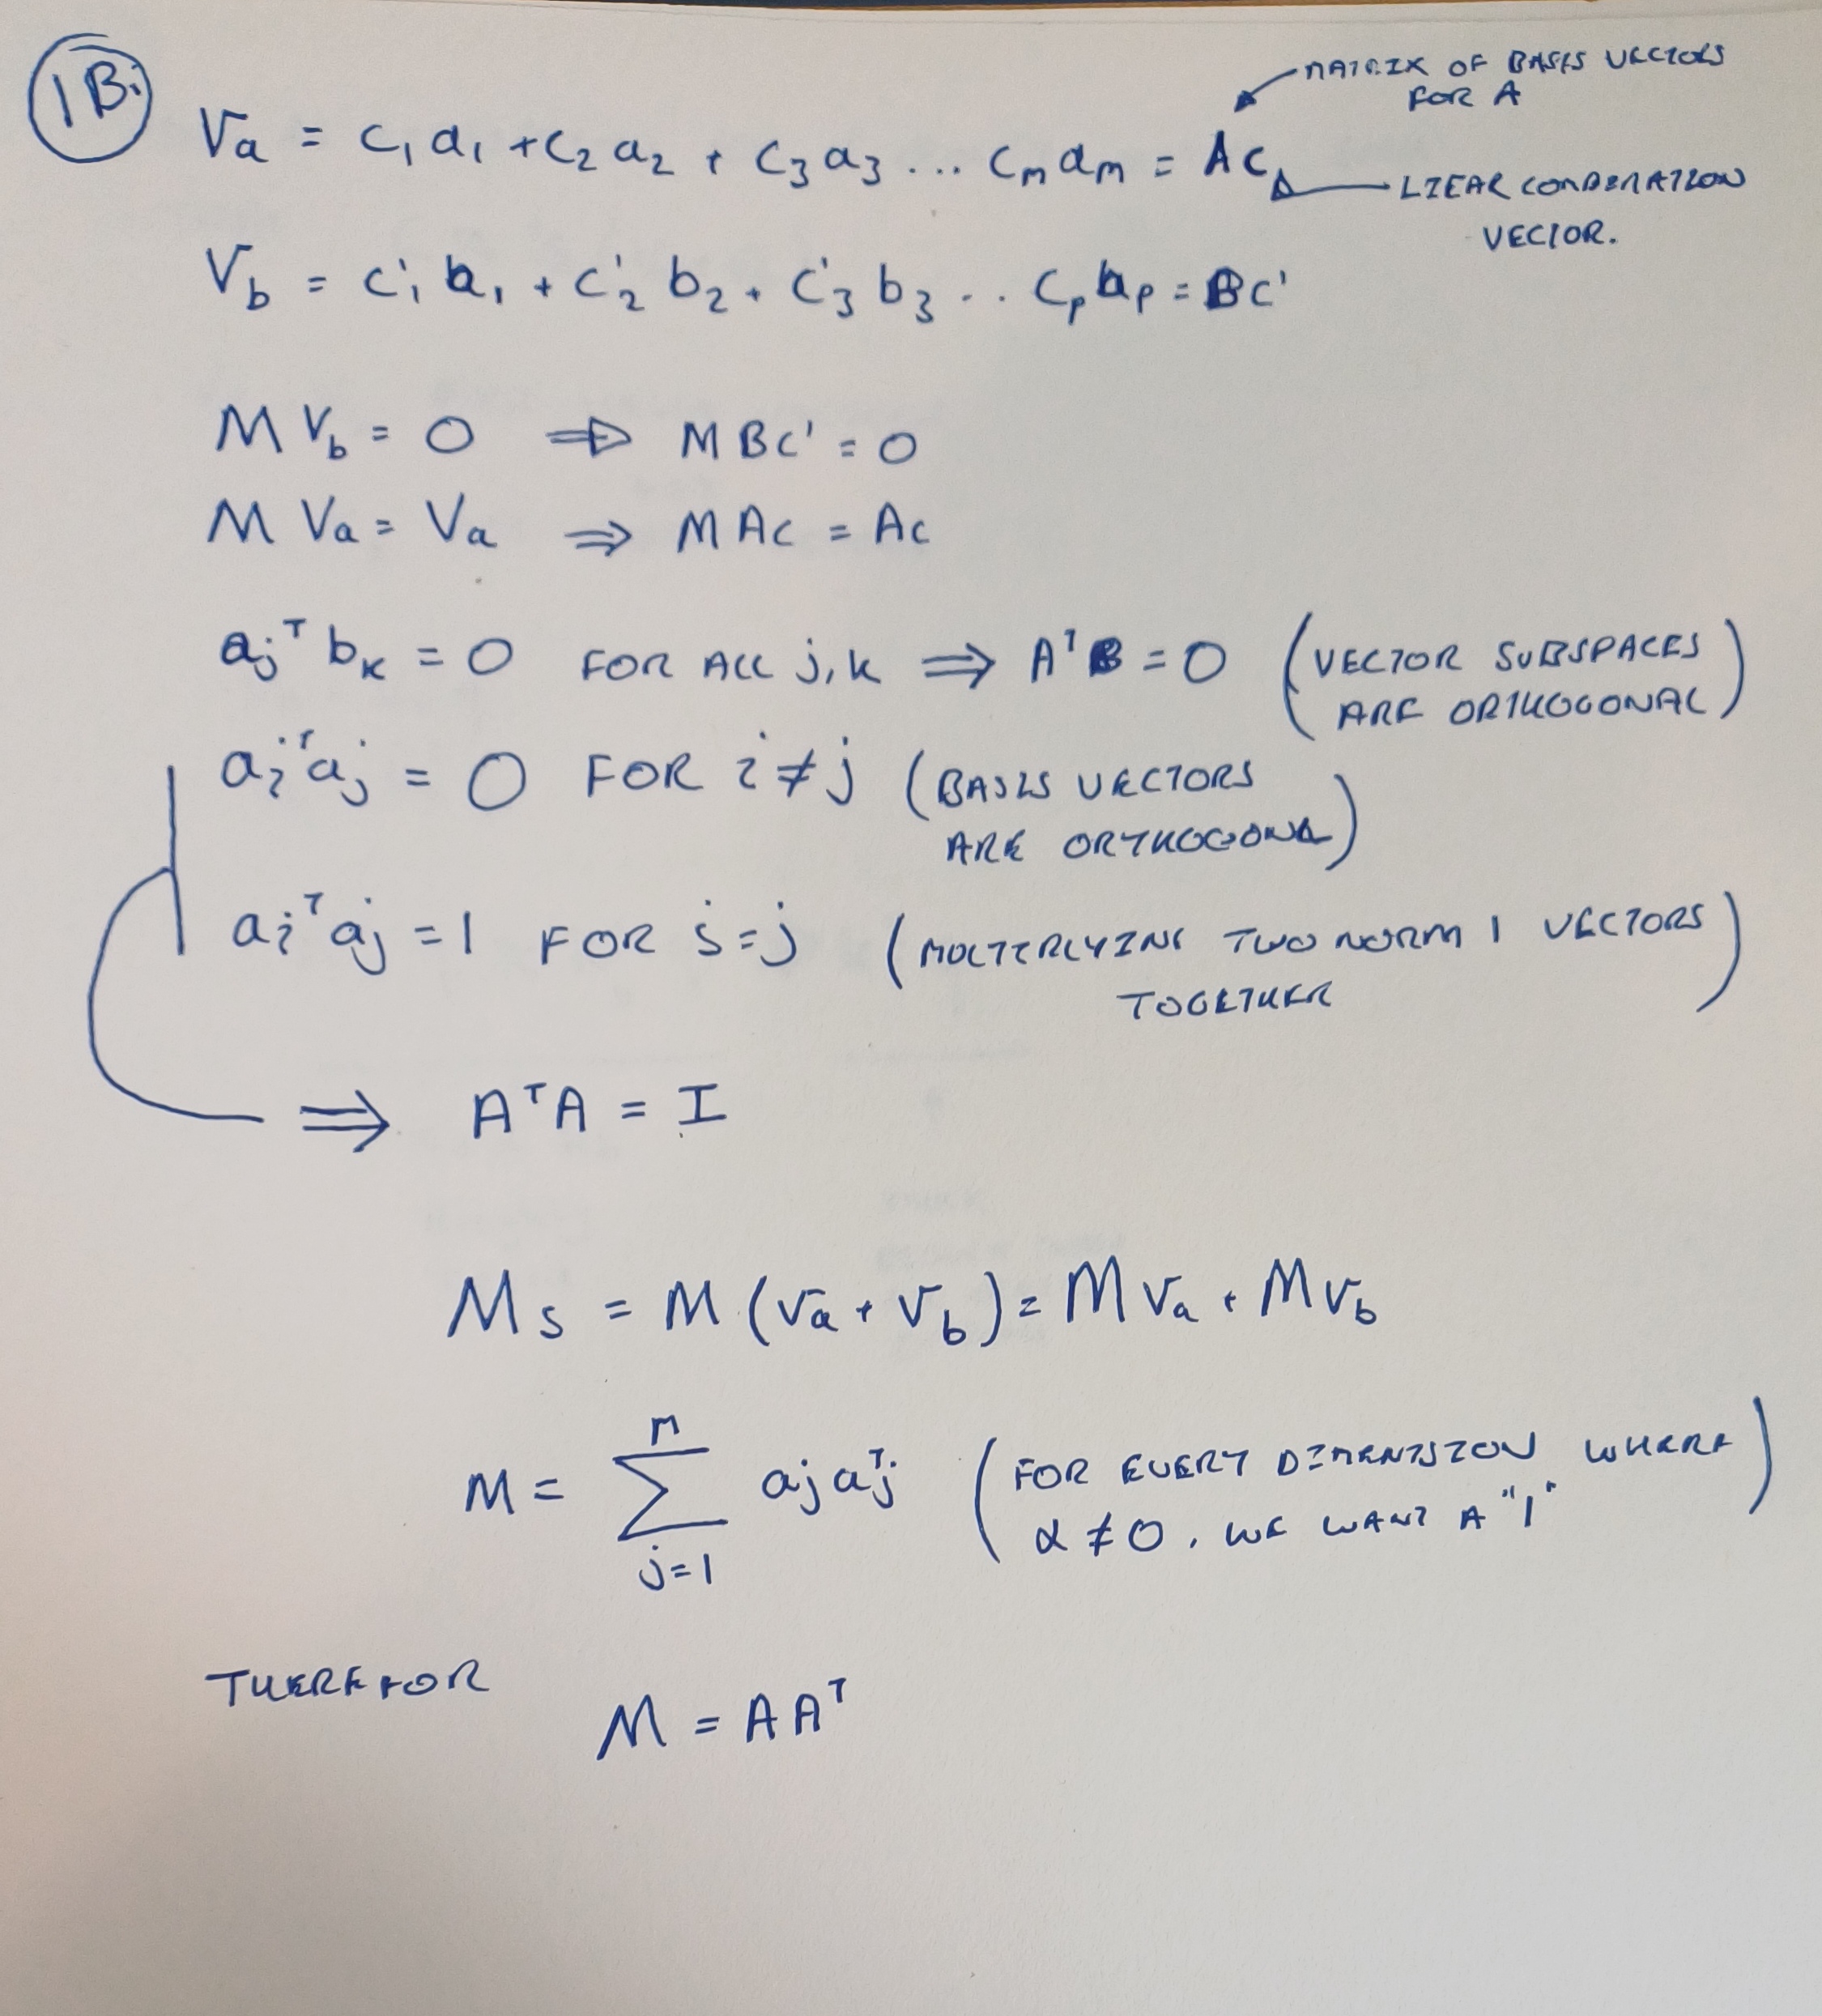 1B.
MATRIX OF BASIS VECTORS
FOR A
Va = c₁a₁ + c₂a₂ + c₃a₃ ... cₘaₘ = Ac
LIEAR COMBINATION
VECTOR.
V_b = c'₁b₁ + c'₂b₂ + c'₃b₃ .. cₚbₚ = Bc'
M V_b = 0 ⇒ M B c' = 0
M Va = Va ⇒ M A c = A c
aⱼᵀ bₖ = 0 FOR ALL j,k ⇒ AᵀB = 0 (VECTOR SUBSPACES
ARE ORTHOGONAL)
aᵢᵀaⱼ = 0 FOR i ≠ j (BASIS VECTORS
ARE ORTHOGONAL)
aᵢᵀaⱼ = 1 FOR i = j (MULTIPLYING TWO NORM 1 VECTORS
TOGETHER)
⇒ AᵀA = I
Ms = M (Va + V_b) = M Va + M V_b
m
M = Σ aⱼaⱼᵀ (FOR EVERY DIMENTSION WHERE
α ≠ 0, WE WANT A "1")
j=1
THEREFOR
M = AAᵀ